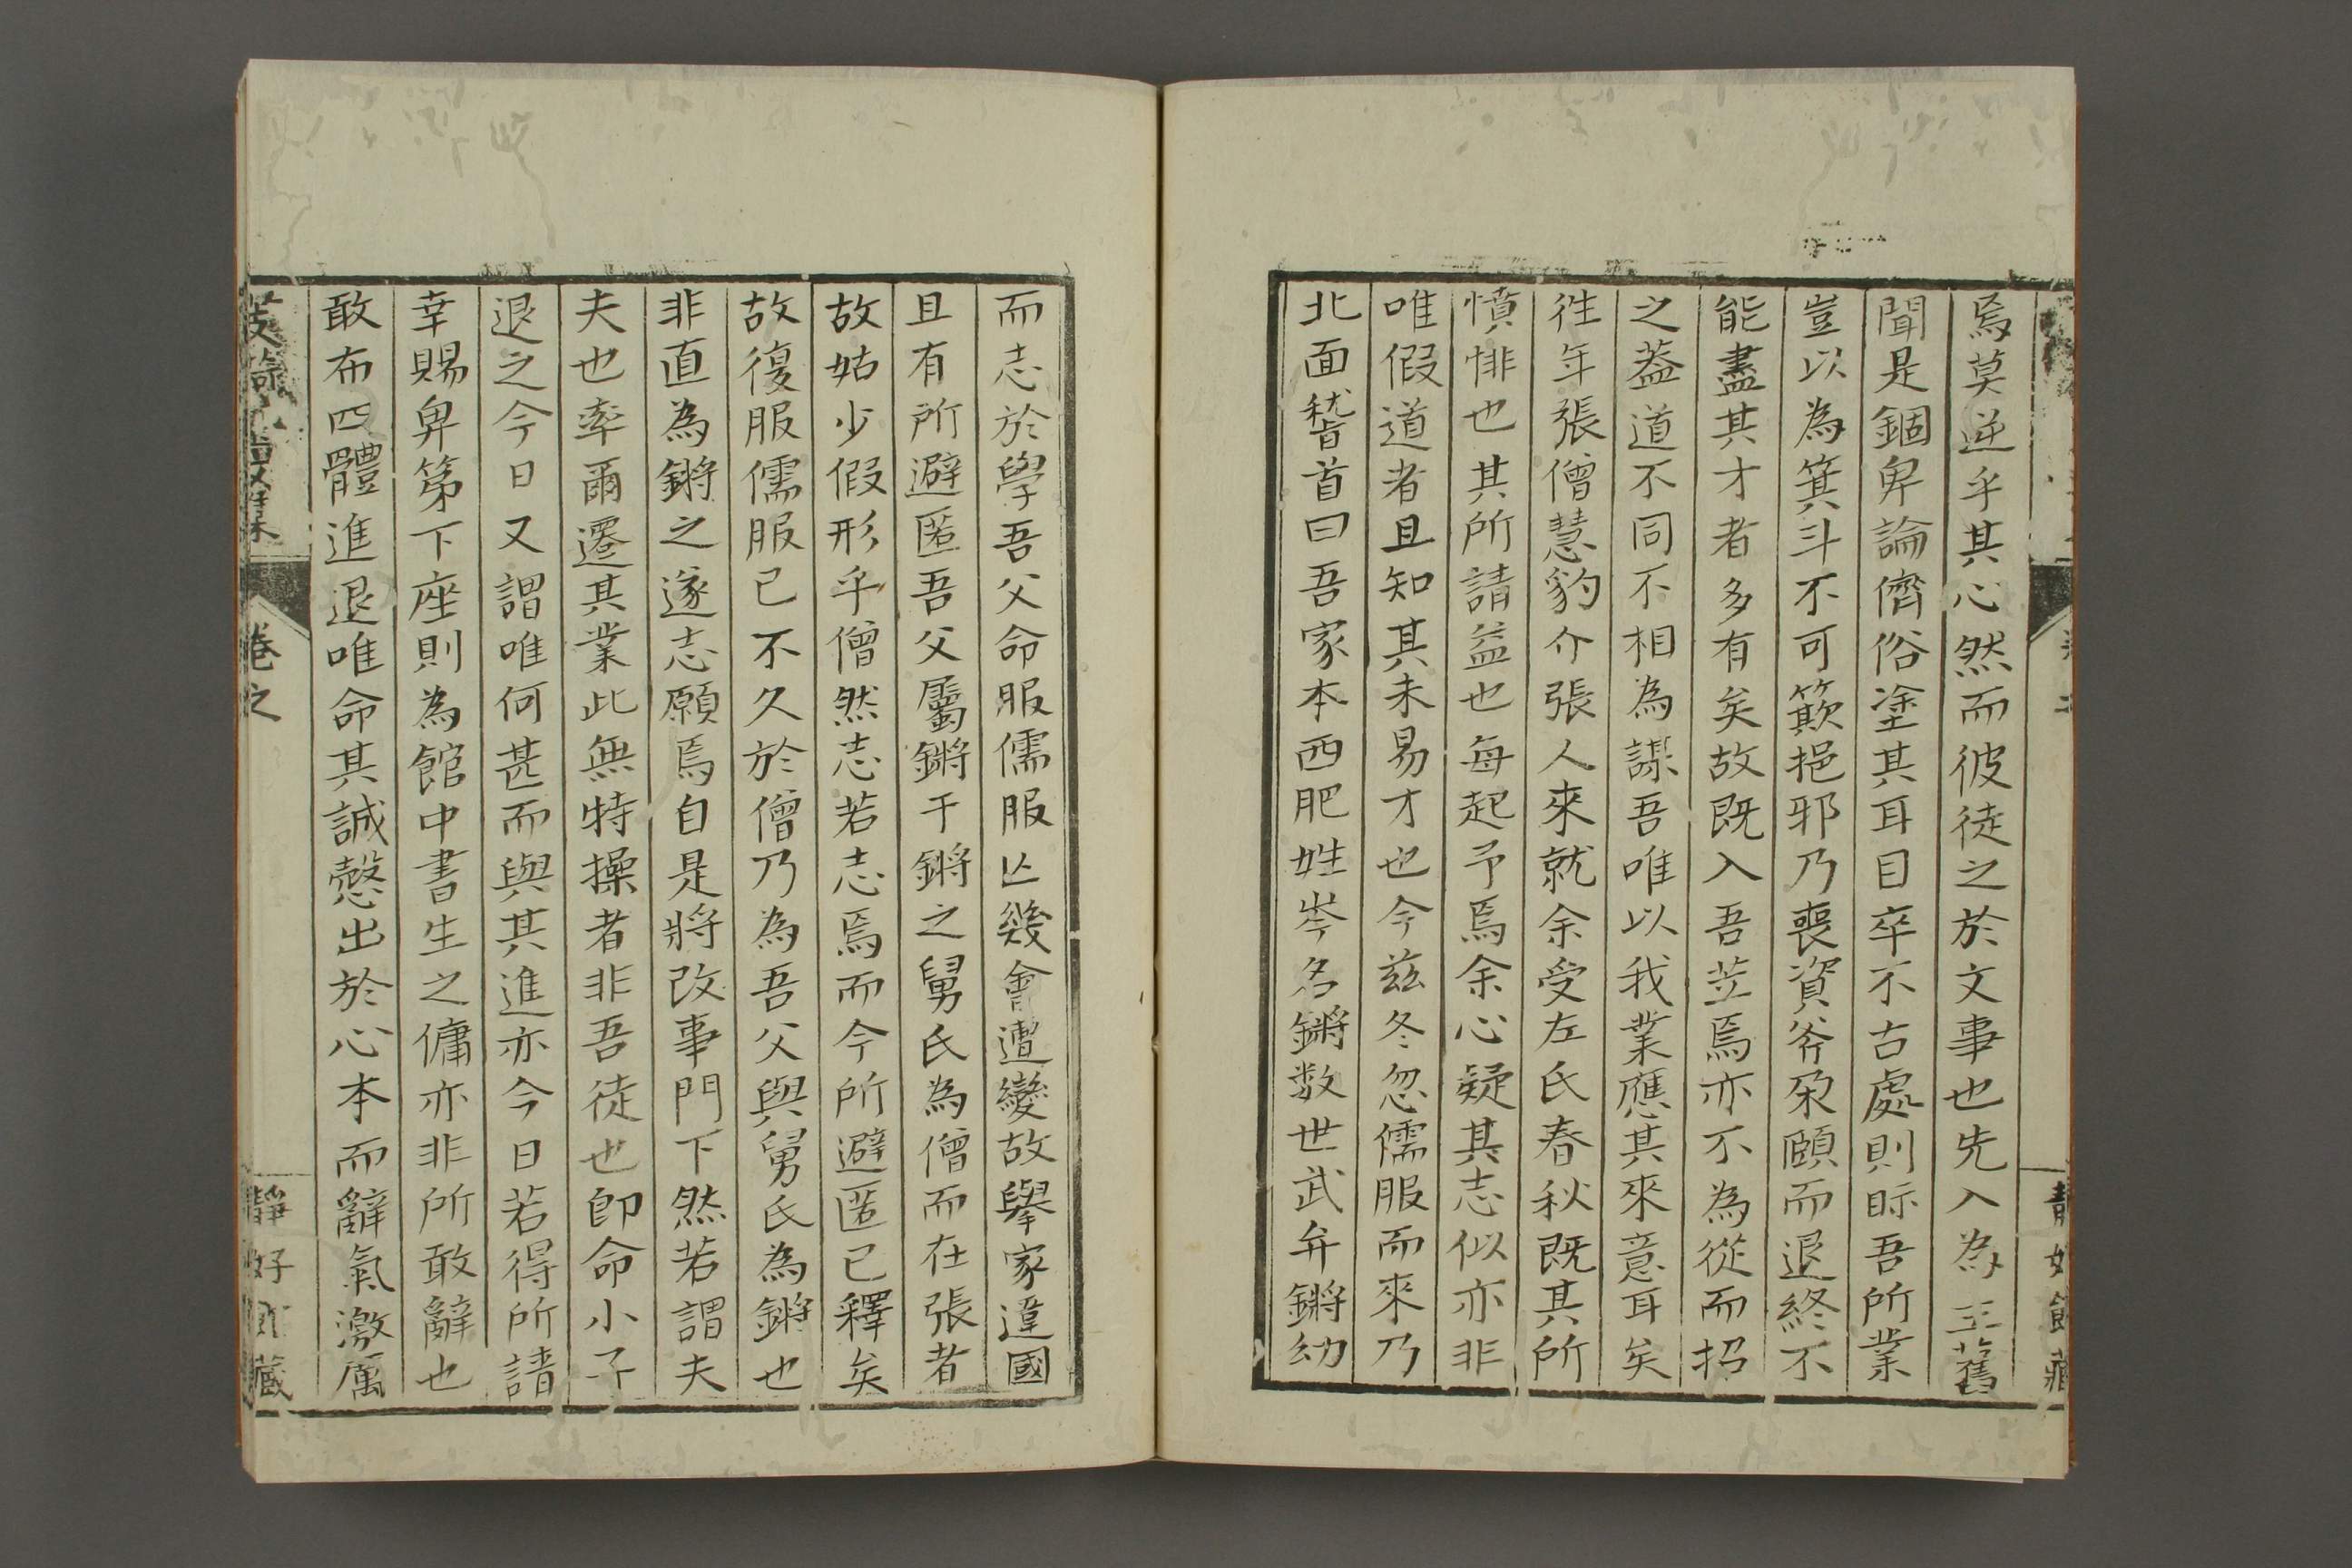 焉莫逆乎其心然而彼徒之於文事也先入為主舊
聞是錮卑論儕俗塗其耳目卒不古處則眎吾所業
豈以為箕斗不可簸挹邪乃喪資斧朶頤而退終不
能盡其才者多有矣故既入吾苙焉亦不為從而招
之葢道不同不相為謀吾唯以我業應其來意耳矣
徃年張僧慧豹介張人來就余受左氏春秋既其所
憤悱也其所請益也每起予焉余心疑其志似亦非
唯假道者且知其未易才也今茲冬忽儒服而來乃
北面稽首曰吾家本西肥姓岑名鏘数世武弁鏘幼
而志於學吾父命服儒服亾幾會遭變故擧家違國
且有所避匿吾父屬鏘于鏘之舅氏為僧而在張者
故姑少假形乎僧然志若志焉而今所避匿已釋矣
故復服儒服已不久於僧乃為吾父與舅氏為鏘也
非直為鏘之遂志願焉自是將改事門下然若謂夫
夫也率爾遷其業此無特操者非吾徒也卽命小子
退之今日又謂唯何甚而與其進亦今日若得所請
幸賜卑第下座則為館中書生之傭亦非所敢辭也
敢布四體進退唯命其誠愨出於心本而辭氣激厲
卷之
靜好館藏